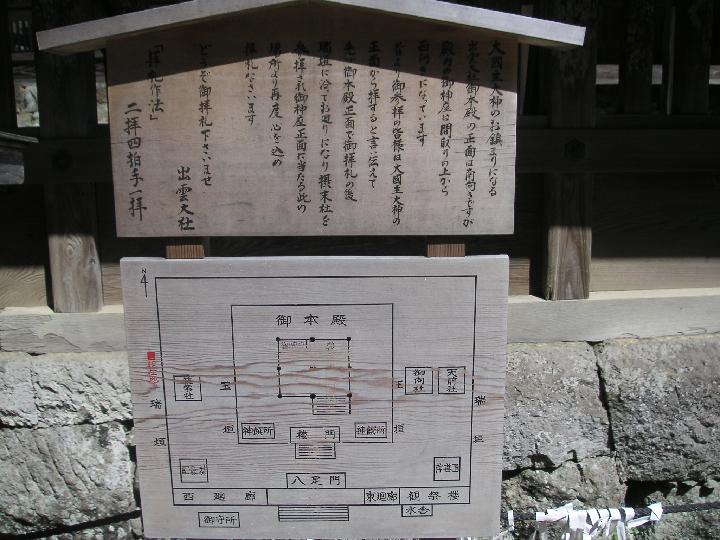 大國主大神のお鎮まりになる
出雲大社御本殿の正面は南向きですが
殿内の御神座は間取りの上から
西向きになっています
昔より御参拝の皆様は大国主大神の
正面から拝すると言い伝えて
先ず御本殿正面で御拝礼の後
瑞垣に沿てお廻りになり摂末社を
参拝され御神座正面に当たる此の
場所より再度心を込め
拝礼なさいます
どうぞ御拝礼下さいませ
出雲大社
「拝礼作法」
二拝四拍手一拝
N
御本殿
玉垣
玉垣
御向社
天前社
瑞垣
瑞垣
神饌所
楼門
神饌所
八足門
西廻廊
東廻廊
観祭楼
御守所
水舎